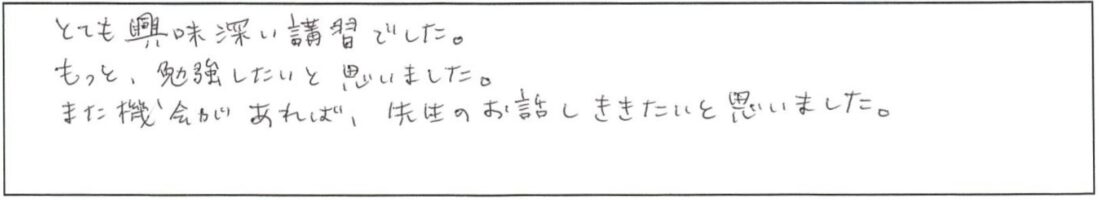 とても興味深い講習でした。
もっと、勉強したいと思いました。
また機会があれば、先生のお話しききたいと思いました。